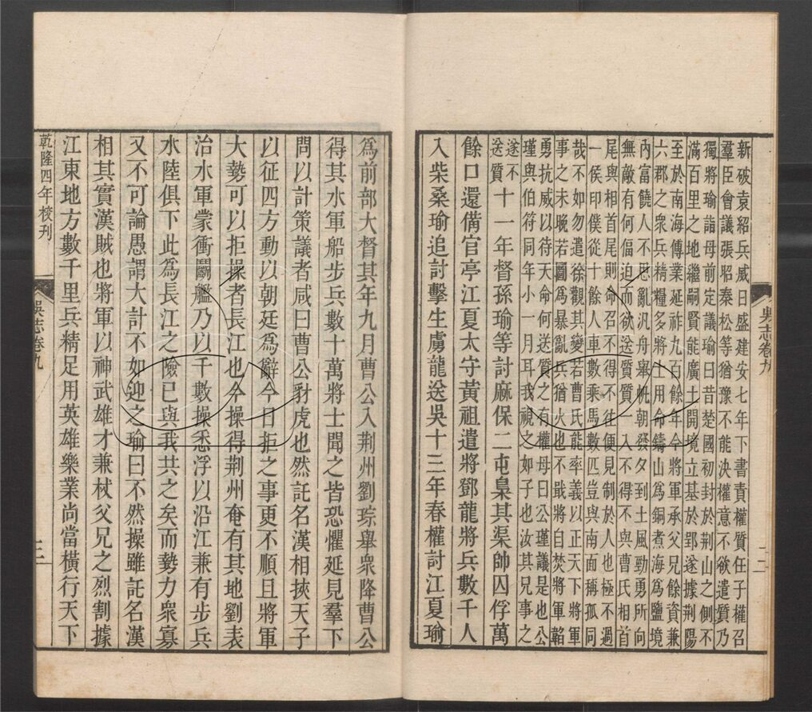 新破袁紹兵威日盛建安七年下書責權質任子權召
羣臣會議張昭秦松等猶豫不能決權意不欲遣質乃
獨將瑜詣母前定議瑜曰昔楚國初封於荆山之側不
滿百里之地繼嗣賢能廣土開境立基於郢遂據荆陽
至於南海傳業延祚九百餘年今將軍承父兄餘資兼
六郡之衆兵精糧多將士用命鑄山爲銅煮海爲鹽境
內富饒人不思亂汎舟舉帆朝發夕到土風勁勇所向
無敵有何偪迫而欲送質質一入不得不與曹氏相首
尾與相首尾則命召不得不往便見制於人也極不過
一侯印僕從十餘人車數乘馬數匹豈與南面稱孤同
哉不如勿遣徐觀其變若曹氏能率義以正天下將軍
事之未晚若圖爲暴亂兵猶火也不戢將自焚將軍韜
勇抗威以待天命何送質之有權母曰公瑾議是也公
瑾與伯符同年小一月耳我視之如子也汝其兄事之
遂不送質十一年督孫瑜等討麻保二屯梟其渠帥囚俘萬
餘口還備官亭江夏太守黃祖遣將鄧龍將兵數千人
入柴桑瑜追討擊生虜龍送吳十三年春權討江夏瑜
吳志卷九 二
爲前部大督其年九月曹公入荆州劉琮舉衆降曹公
得其水軍船步兵數十萬將士聞之皆恐懼延見羣下
問以計策議者咸曰曹公豺虎也然託名漢相挾天子
以征四方動以朝廷爲辭今日拒之事更不順且將軍
大勢可以拒操者長江也今操得荆州奄有其地劉表
治水軍蒙衝鬭艦乃以千數操悉浮以沿江兼有步兵
水陸俱下此爲長江之險已與我共之矣而勢力衆寡
又不可論愚謂大計不如迎之瑜曰不然操雖託名漢
相其實漢賊也將軍以神武雄才兼杖父兄之烈割據
江東地方數千里兵精足用英雄樂業尚當橫行天下
乾隆四年校刊 吳志卷九 三